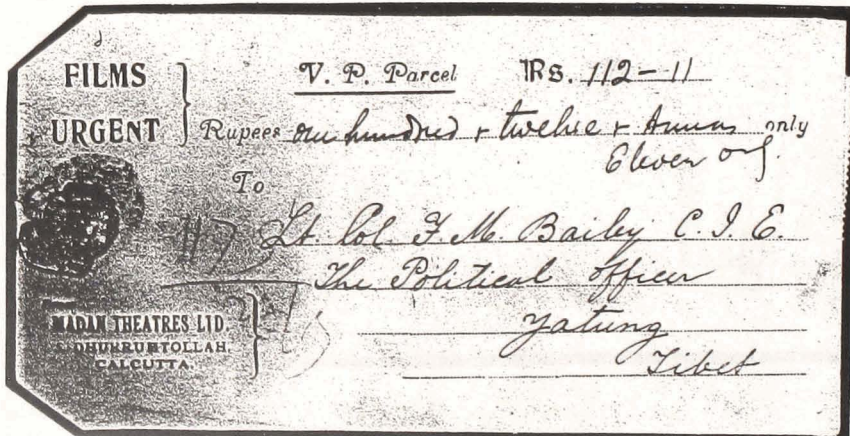 FILMS
URGENT
V. P. Parcel RS. 112-11
Rupees one hundred + twelve + Annas only
Eleven only
To
Lt. Col. F. M. Bailey C. I. E.
The Political officer
Yatung
Tibet
MADAN THEATRES LTD.
DHURRUMTOLLAH,
CALCUTTA.